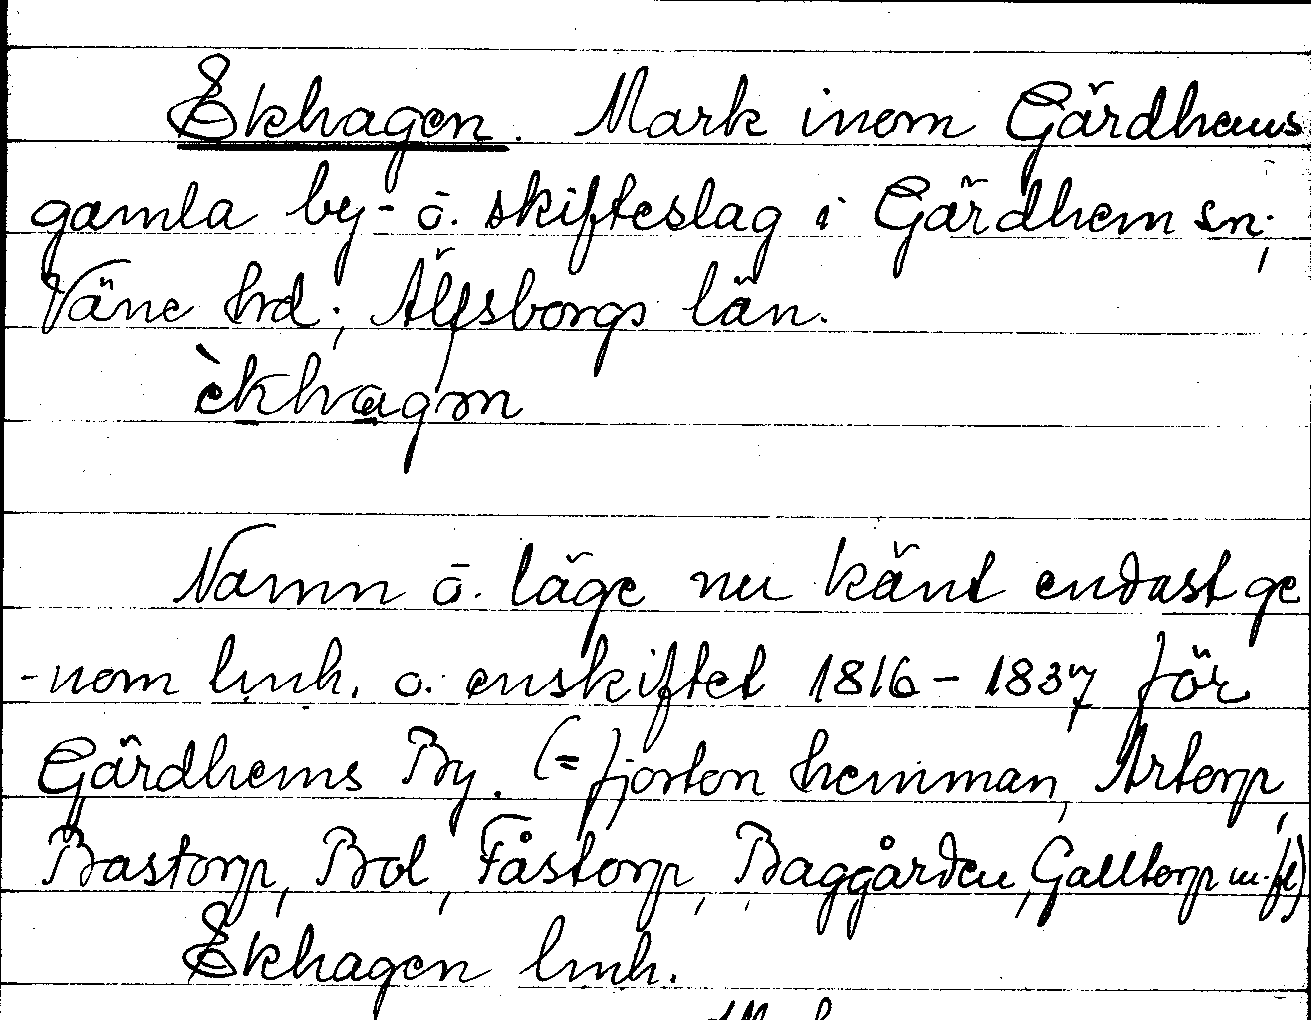 Ekhagen. Mark inom Gärdhems
gamla by- o. skifteslag i Gärdhem sn;
Väne hrd; Älfsborgs län.
èkhagm
Namn o. läge nu känt endast ge
-nom lmh. o. enskiftet 1816-1837 för
Gärdhems By. (= fjorton hemman, Artorp,
Bastorp, Bol, Fåstorp, Baggården, Galltorp m.fl)
Ekhagen lmh.